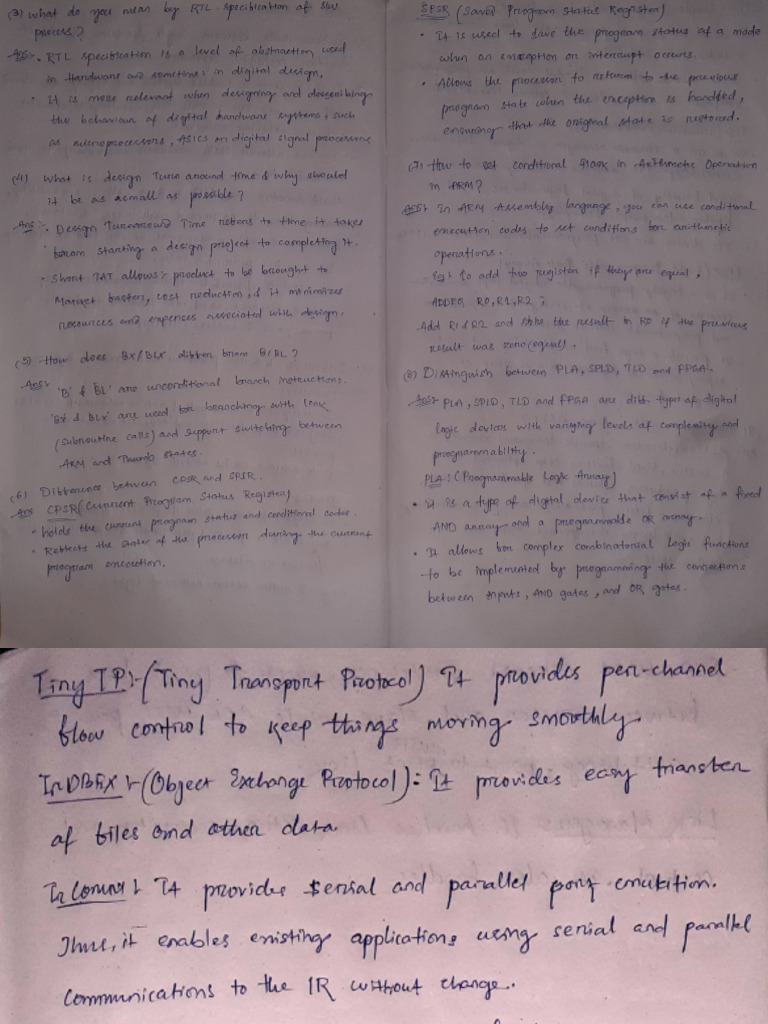 (3) What do you mean by RTL specification of SW
process?
Ans:- • RTL specification is a level of abstraction used
in Hardware and sometimes in digital design.
• It is more relevant when designing and describing
the behaviour of digital hardware systems, such
as microprocessors, ASICS or digital signal processors
(4) What is design Turn around time & why should
it be as small as possible?
Ans:- • Design Turnaround Time refers to time it takes
from starting a design project to completing it.
• Short TAT allows: product to be brought to
Market faster, cost reduction, & it minimizes
resources and expenses associated with design.
(5) How does BX/BLX differ from B/BL?
Ans:- 'B' & 'BL' are unconditional branch instructions.
'BX & BLX' are used for branching with link
(subroutine calls) and support switching between
ARM and Thumb states.
(6) Difference between CPSR and SPSR.
Ans CPSR (Current Program Status Register)
• holds the current program status and conditional codes.
• Reflects the state of the processor during the current
program execution.
SPSR (Saved Program Status Register)
• It is used to save the program status of a mode
when an exception or interrupt occurs.
• Allows the processor to return to the previous
program state when the exception is handled,
ensuring that the original state is restored.
(7) How to set conditional flags in Arithmetic Operation
in ARM?
Ans:- In ARM Assembly language, you can use conditional
execution codes to set conditions for arithmetic
operations.
Eg:- To add two register if they are equal,
ADDEQ R0, R1, R2 ;
Add R1 & R2 and store the result in R0 if the previous
result was zero (equal).
(8) Distinguish between PLA, SPLD, TLD and FPGA.
Ans:- PLA, SPLD, TLD and FPGA are diff. type of digital
logic devices with varying levels of complexity and
programmability.
PLA: (Programmable Logic Array)
• it is a type of digital device that consist of a fixed
AND array and a programmable OR array.
• It allows for complex combinatorial logic functions
to be implemented by programming the connections
between inputs, AND gates, and OR gates.
Tiny TP:- (Tiny Transport Protocol) It provides per-channel
flow control to keep things moving smoothly.
IrOBEX :- (Object Exchange Protocol): It provides easy transfer
of files and other data.
IrComm : It provides serial and parallel port emulation.
Thus, it enables existing applications using serial and parallel
communications to the IR without change.